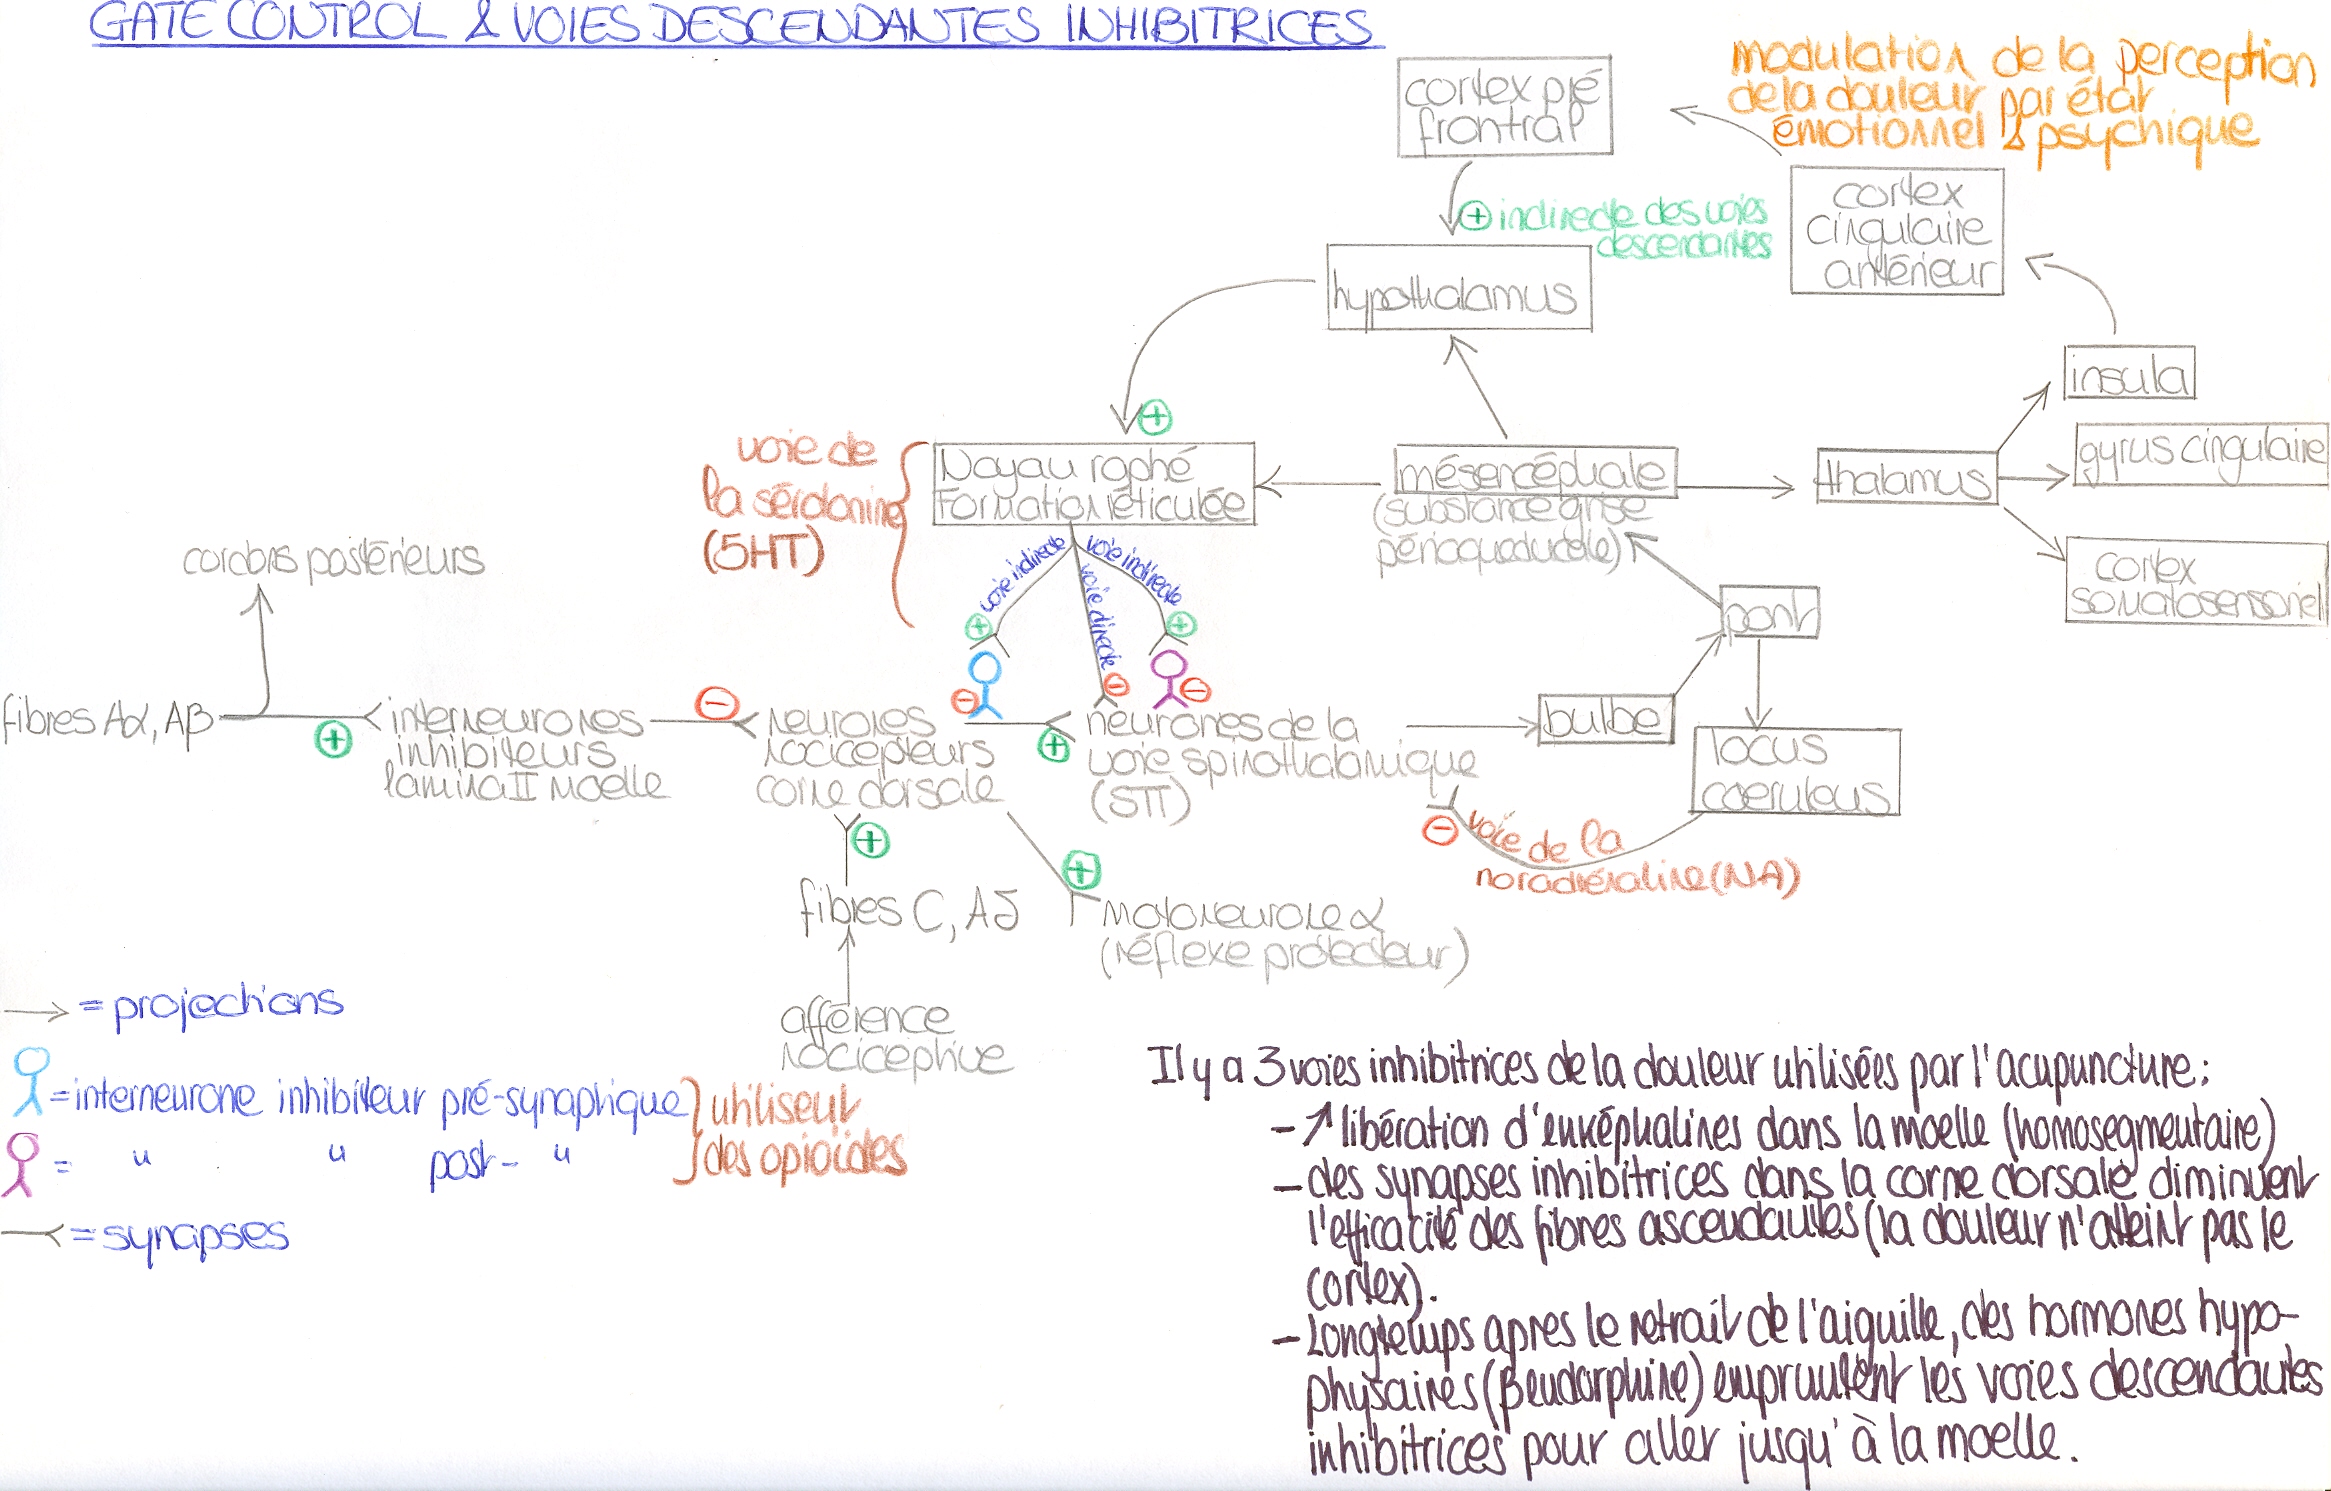 GATE CONTROL & VOIES DESCENDANTES INHIBITRICES
modulation de la perception
de la douleur par état
émotionnel & psychique
cortex pré
frontral
⊕ indirecte des voies
descendantes
cortex
cingulaire
antérieur
hypothalamus
insula
⊕
voie de
la sérotonine
(5HT)
Noyau raphé
Formation réticulée
mésencéphale
(substance grise
périaqueducale)
thalamus
gyrus cingulaire
cortex
somatosensoriel
cordons postérieurs
voie indirecte
voie directe
voie indirecte
⊕
⊕
pont
⊖
⊖
⊖
⊖
fibres Aα, Aβ
⊕
interneurones
inhibiteurs
lamina II moelle
neurones
nocicepteurs
corne dorsale
⊕
neurones de la
voie spinothalamique
(STT)
bulbe
locus
coeruleus
⊕
⊖
voie de la
noradrénaline (NA)
fibres C, Aδ
⊕
motoneurone α
(réflexe protecteur)
afférence
nociceptive
→ = projections
= interneurone inhibiteur pré-synaptique
= " " post- "
utilisent
des opioïdes
= synapses
Il y a 3 voies inhibitrices de la douleur utilisées par l'acupuncture:
- ↗ libération d'enképhalines dans la moelle (homosegmentaire)
- des synapses inhibitrices dans la corne dorsale diminuent
l'efficacité des fibres ascendantes (la douleur n'atteint pas le
cortex).
- Longtemps apres le retrait de l'aiguille, des hormones hypo-
physaires (βendorphine) empruntent les voies descendantes
inhibitrices pour aller jusqu'à la moelle.